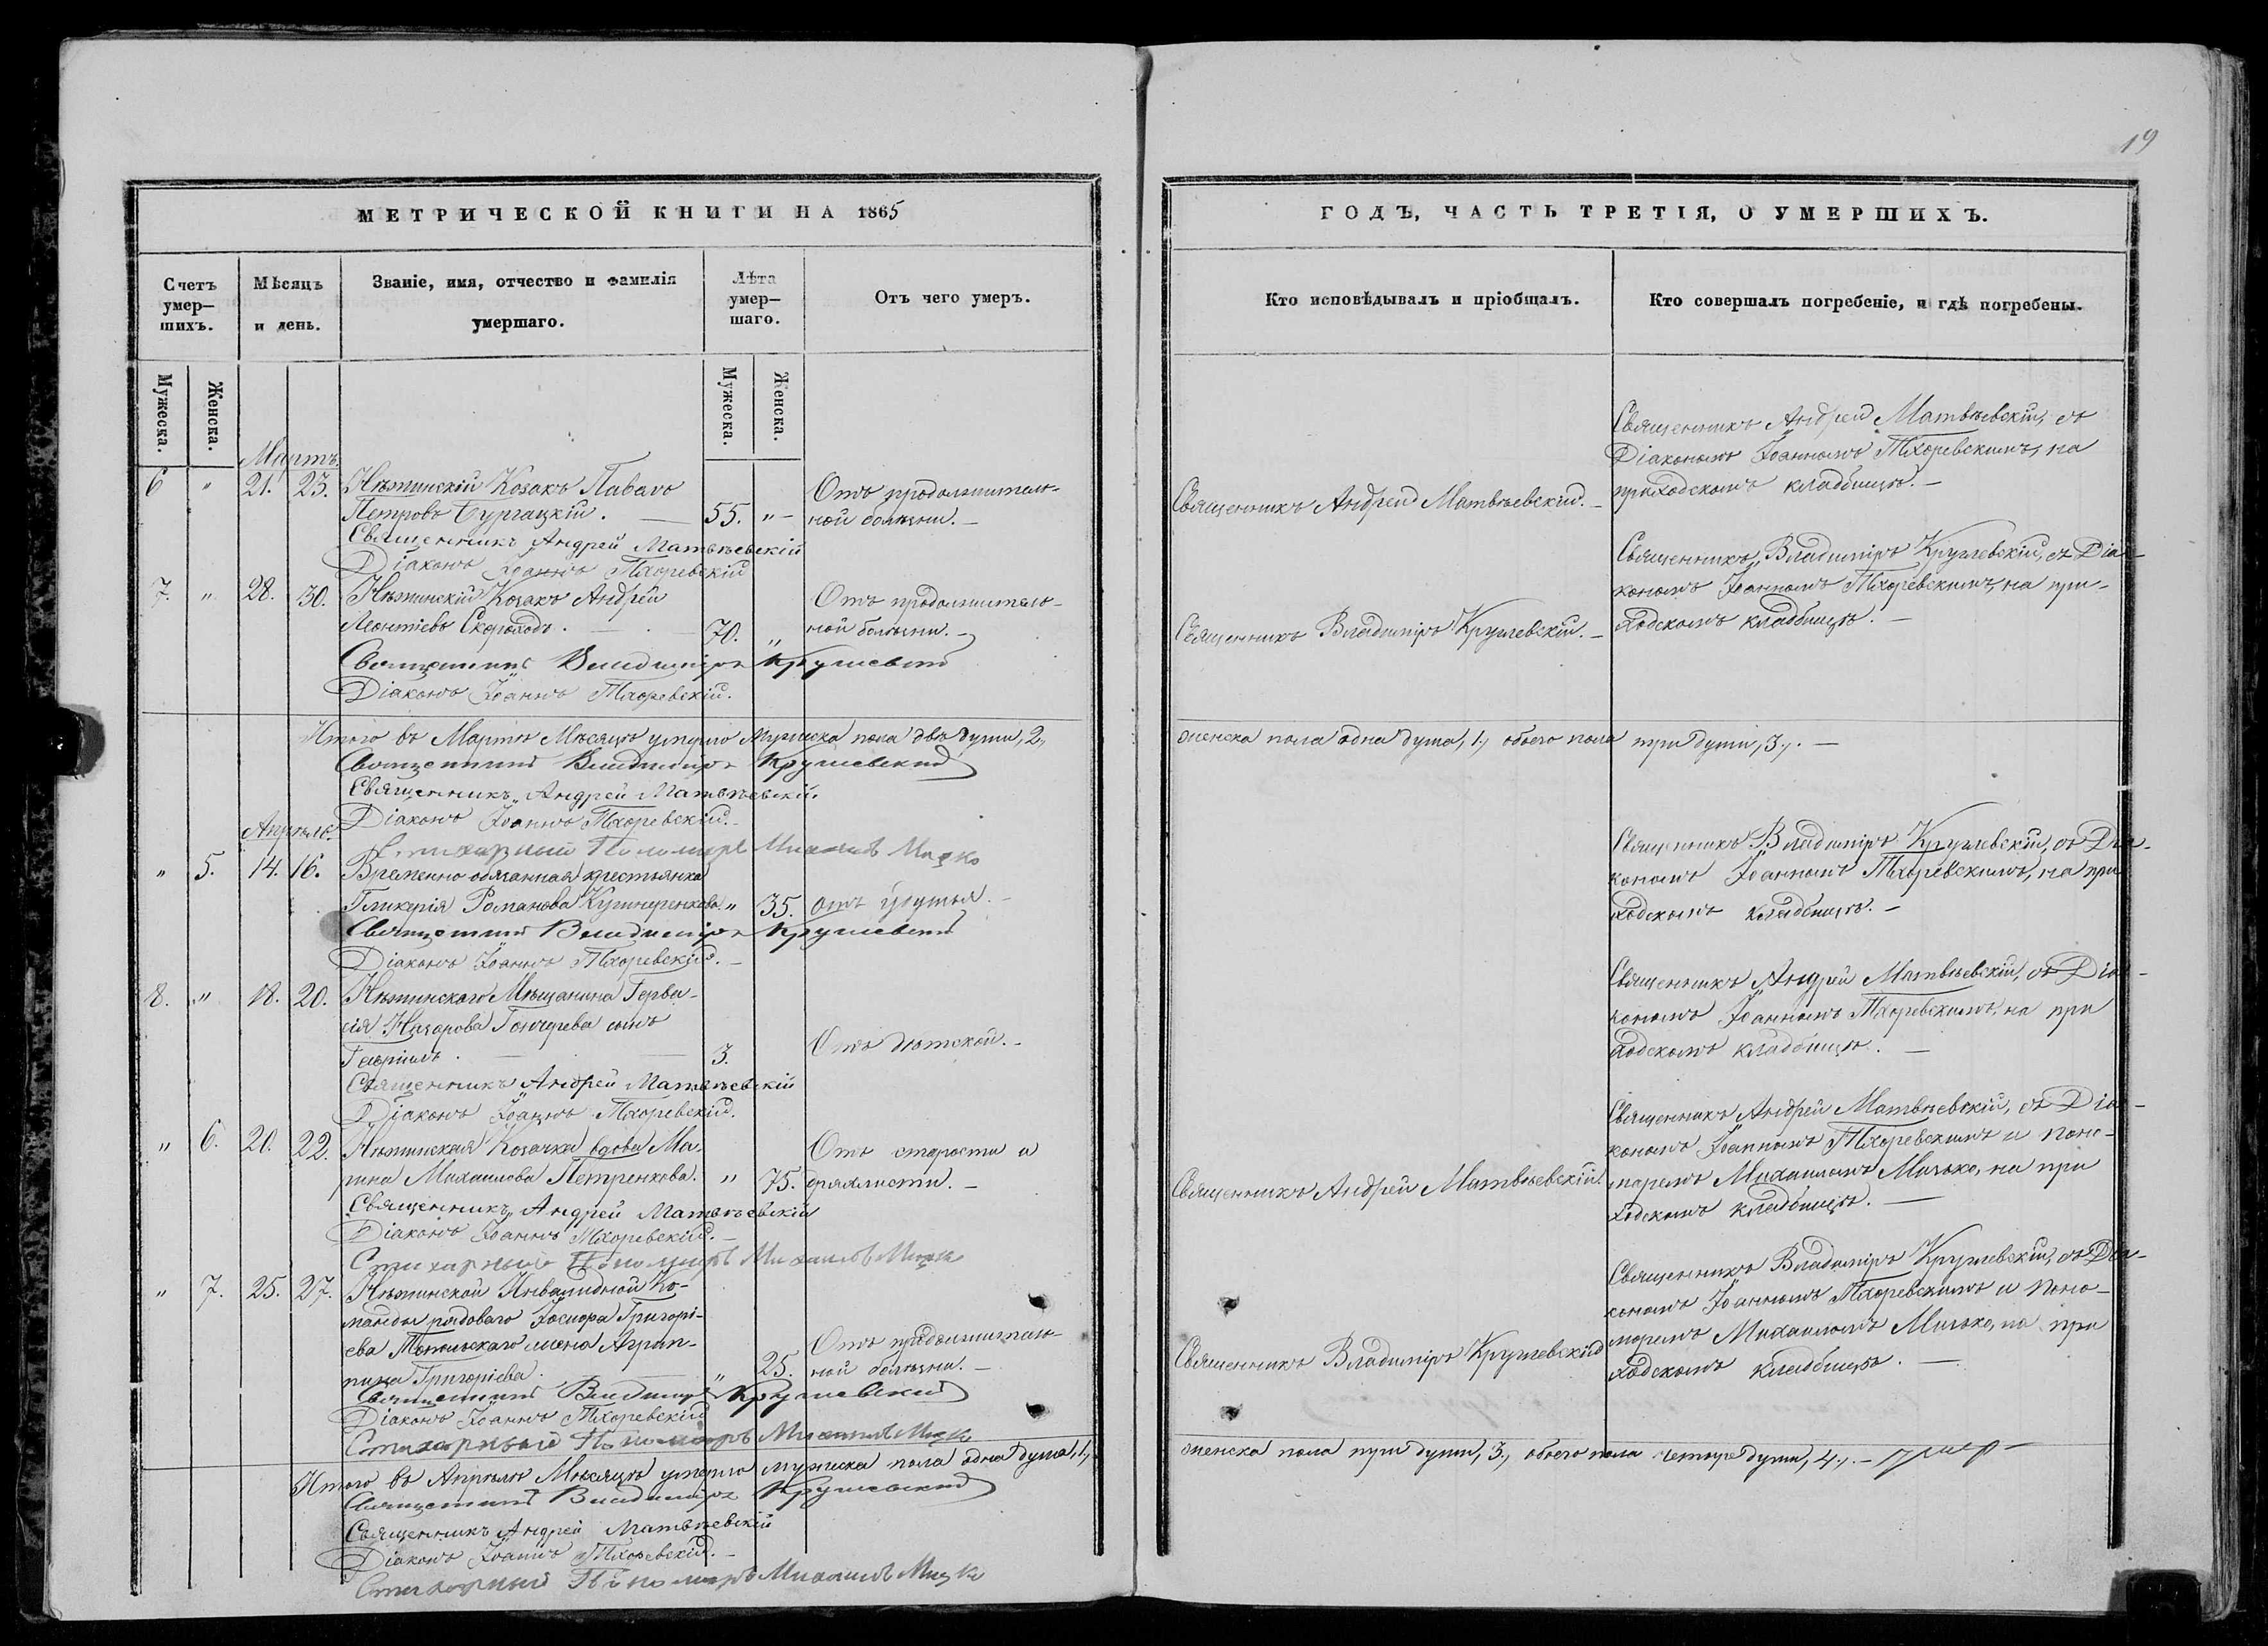 19
МЕТРИЧЕСКОЙ КНИГИ НА 1865
ГОДЪ, ЧАСТЬ ТРЕТІЯ, О УМЕРШИХЪ.
Счетъ умер—шихъ.
Мѣсяцъ и день.
Званіе, имя, отчество и фамилія умершаго.
Лѣта умер—шаго.
Отъ чего умеръ.
Кто исповѣдывалъ и пріобщалъ.
Кто совершалъ погребеніе, и гдѣ погребены.
Мужеска.
Женска.
Мужеска.
Женска.
Мартъ.
6 " 21. 23. Нѣжинскій Козакъ Павелъ
Петровъ Бургацкій. — 55. " —
Отъ продолжитель-
ной болѣзни. —
Священникъ Андрей Матвѣевскій. —
Священникъ Андрей Матвѣевскій, съ
Діакономъ Іоанномъ Тхоревскимъ, на
приходскомъ кладбищѣ. —
Священникъ Андрей Матвѣевскій
Діаконъ Іоаннъ Тхоревскій
7. " 28. 30. Нѣжинскій Козакъ Андрей
Леонтіевъ Скороходъ. — 70. "
Отъ продолжитель-
ной болѣзни. —
Священникъ Владиміръ Крушевскій. —
Священникъ Владиміръ Крушевскій, съ Діа-
кономъ Іоанномъ Тхоревскимъ, на при-
ходскомъ кладбищѣ. —
Священникъ Владиміръ Крушевскій
Діаконъ Іоаннъ Тхоревскій.
Итого въ Мартѣ Мѣсяцѣ умерло мужеска пола двѣ души, 2,
женска пола одна душа, 1., обоего пола три души, 3., . —
Священникъ Владиміръ Крушевскій
Священникъ Андрей Матвѣевскій.
Діаконъ Іоаннъ Тхоревскій. —
Стихарный Пономарь Михаилъ Мицко
Апрѣль.
" 5. 14. 16. Временно обязанная крестьянка
Гликерія Романова " 35. отъ
Священникъ Владиміръ Крушевскій, съ Діа-
кономъ Іоанномъ Тхоревскимъ, на при
ходскомъ кладбищѣ. —
Священникъ Владиміръ Крушевскій
Діаконъ Іоаннъ Тхоревскій. —
8. " 18. 20. Нѣжинскаго Мѣщанина Герва-
сія Назарова Гончарева сынъ
Гавріилъ. — 3.
Отъ дѣтской. —
Священникъ Андрей Матвѣевскій, съ Діа-
кономъ Іоанномъ Тхоревскимъ, на при
ходскомъ кладбищѣ. —
Священникъ Андрей Матвѣевскій
Діаконъ Іоаннъ Тхоревскій.
" 6. 20. 22. Нѣжинская Козачка вдова Ма-
рина Михаилова Петренкова. " 75.
Отъ старости и
дряхлости. —
Священникъ Андрей Матвѣевскій.
Священникъ Андрей Матвѣевскій, съ Діа-
кономъ Іоанномъ Тхоревскимъ и поно-
маремъ Михаиломъ Мицько, на при
ходскомъ кладбищѣ. —
Священникъ Андрей Матвѣевскій
Діаконъ Іоаннъ Тхоревскій. —
Стихарный Пономарь Михаилъ Мицко
" 7. 25. 27. Нѣжинской Инвалидной Ко-
манды рядоваго Григорі-
ева жена Агрип-
пина Григоріева. — " 25.
Отъ продолжитель-
ной болѣзни. —
Священникъ Владиміръ Крушевскій
Священникъ Владиміръ Крушевскій, съ Діа-
кономъ Іоанномъ Тхоревскимъ и поно-
маремъ Михаиломъ Мицько, на при
ходскомъ кладбищѣ. —
Священникъ Владиміръ Крушевскій
Діаконъ Іоаннъ Тхоревскій
Стихарный Пономарь Михаилъ Мицко
Итого въ Апрѣлѣ Мѣсяцѣ умерло мужеска пола одна душа, 1.,
женска пола три души, 3., обоего пола четыре души, 4., . —
Священникъ Владиміръ Крушевскій
Священникъ Андрей Матвѣевскій
Діаконъ Іоаннъ Тхоревскій. —
Стихарный Пономарь Михаилъ Мицко